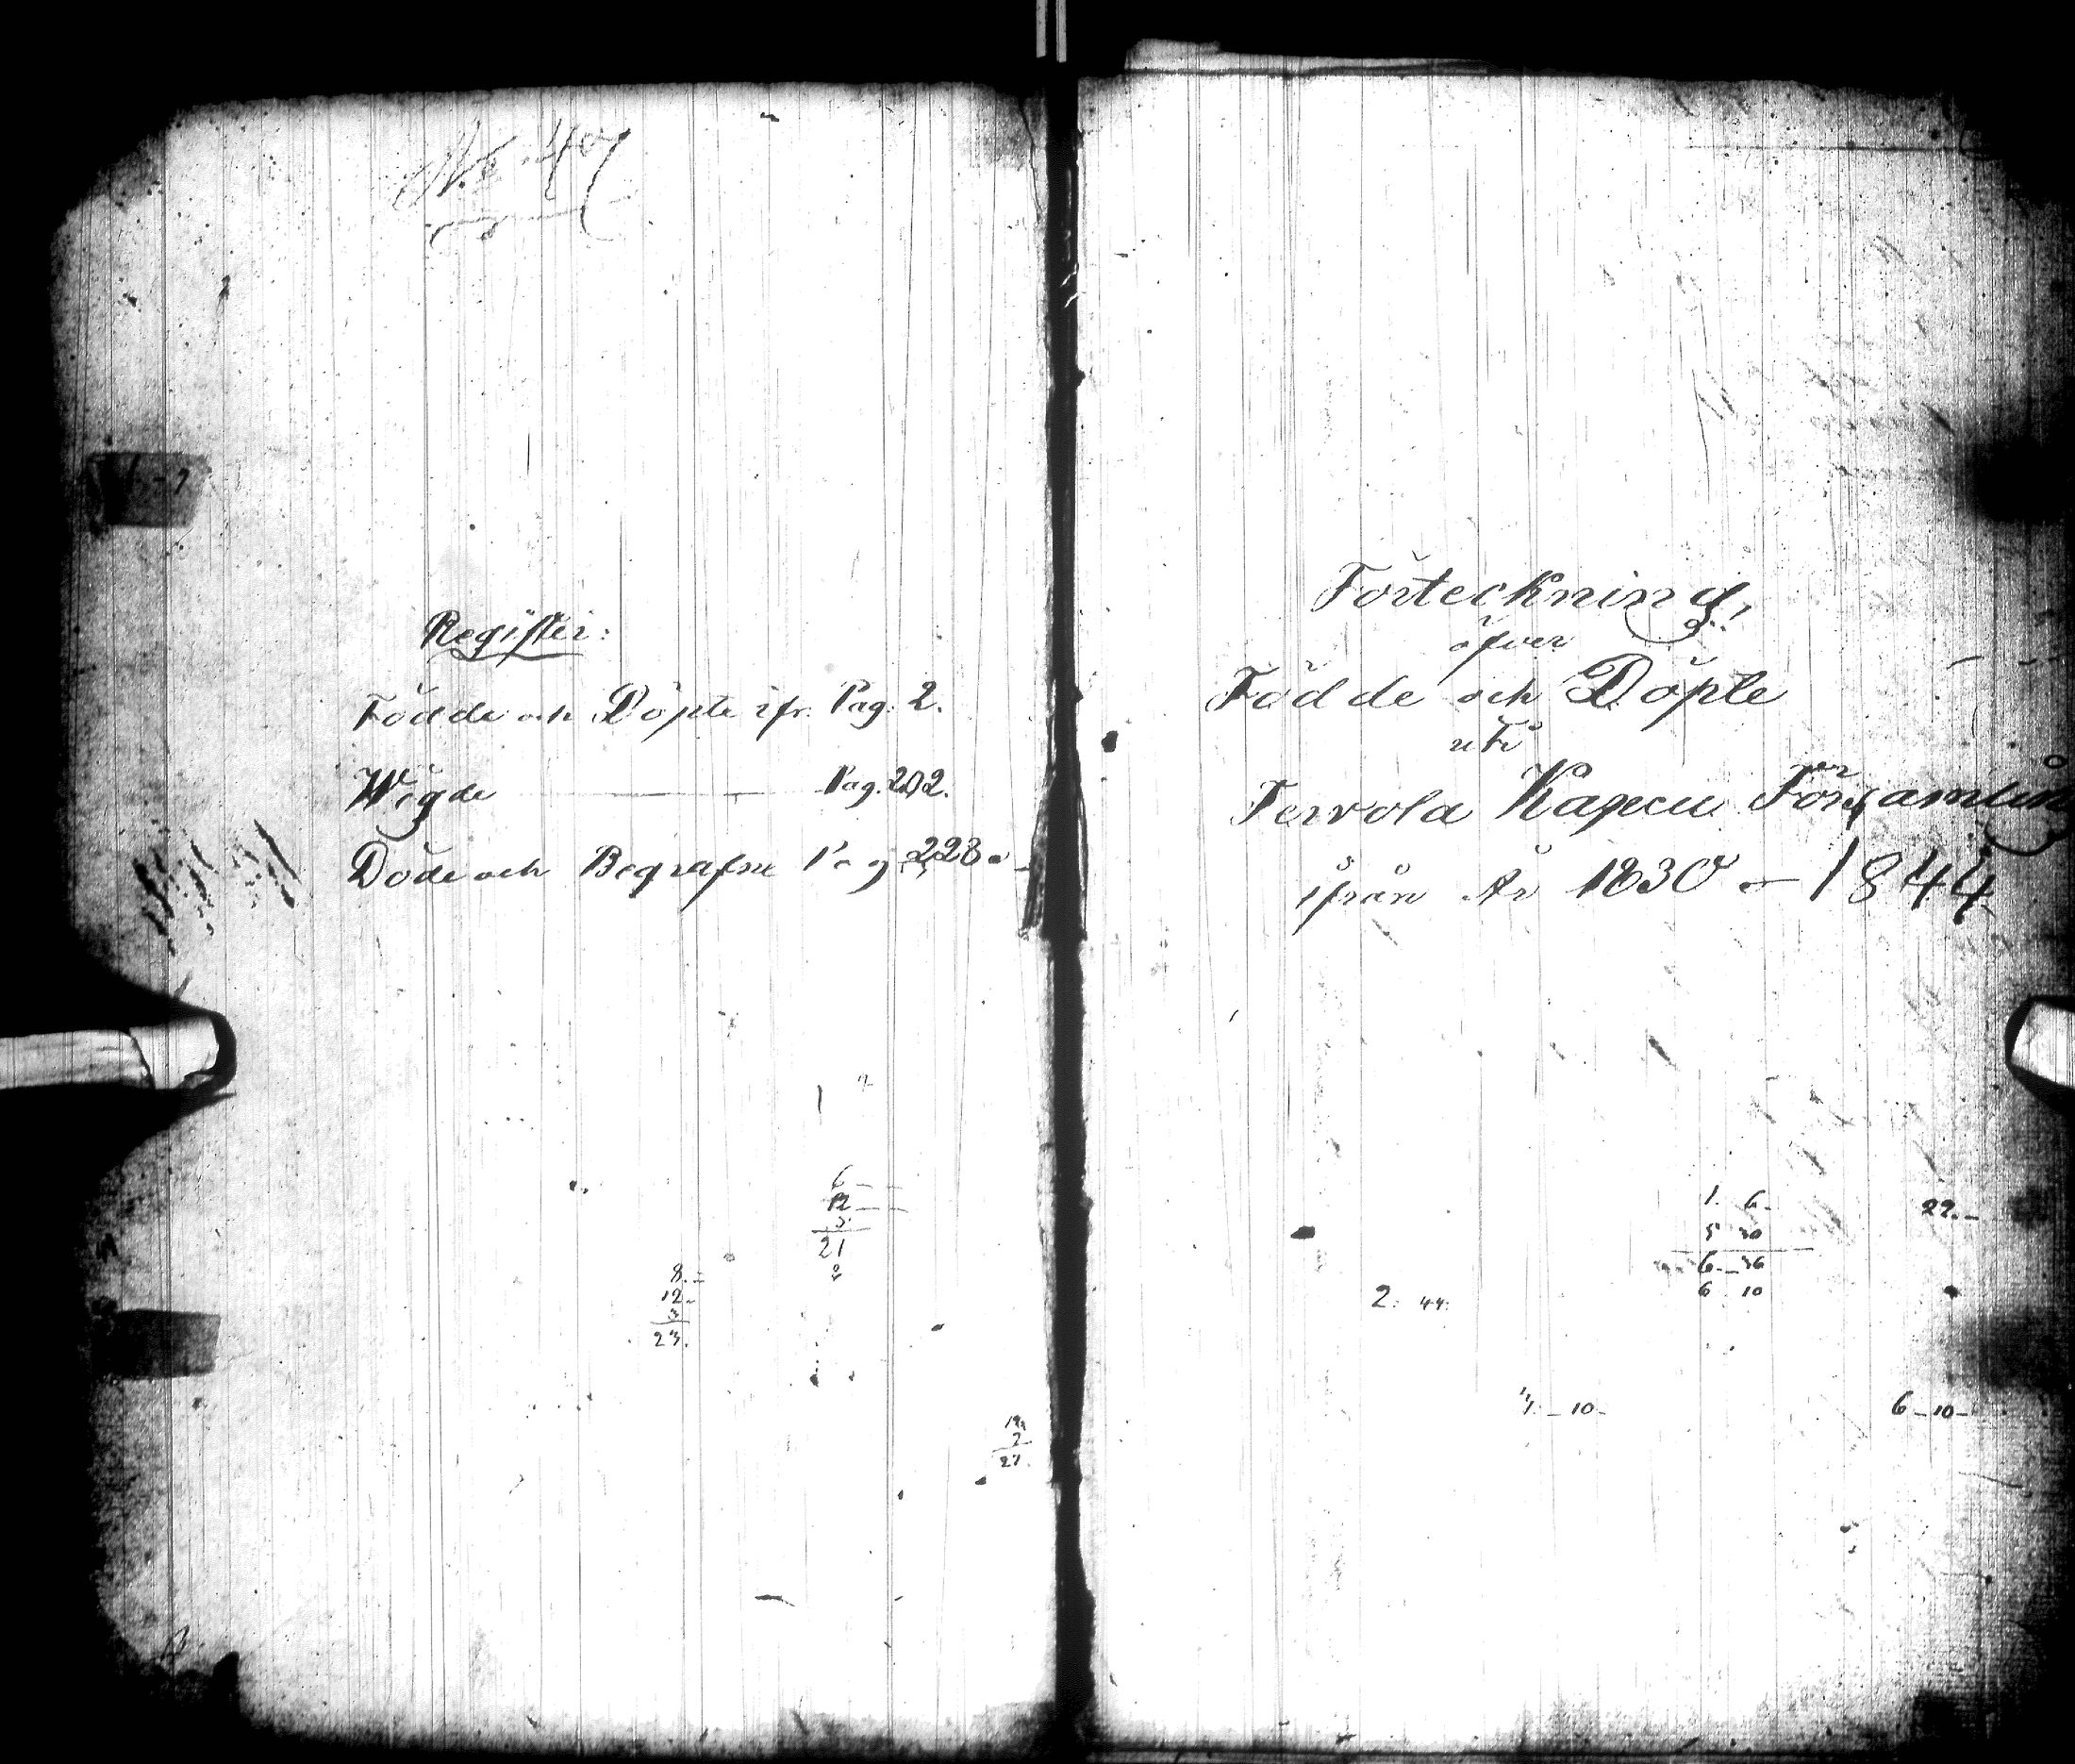 Register:
Födde och Döpte ifr. Pag. 2.
Wigde Pag. 202.
Döde och Begrafne Pag 228.
6
12
3
21
2
8.
12
3
23.
2
21.
Förteckning,
öfver
Födde och Döpte
uti
Tervola Kapell Församling
ifrån År 1830 – 1844
1. 6
5 30
6 36
6 10
22.
2. 44.
10
6 10